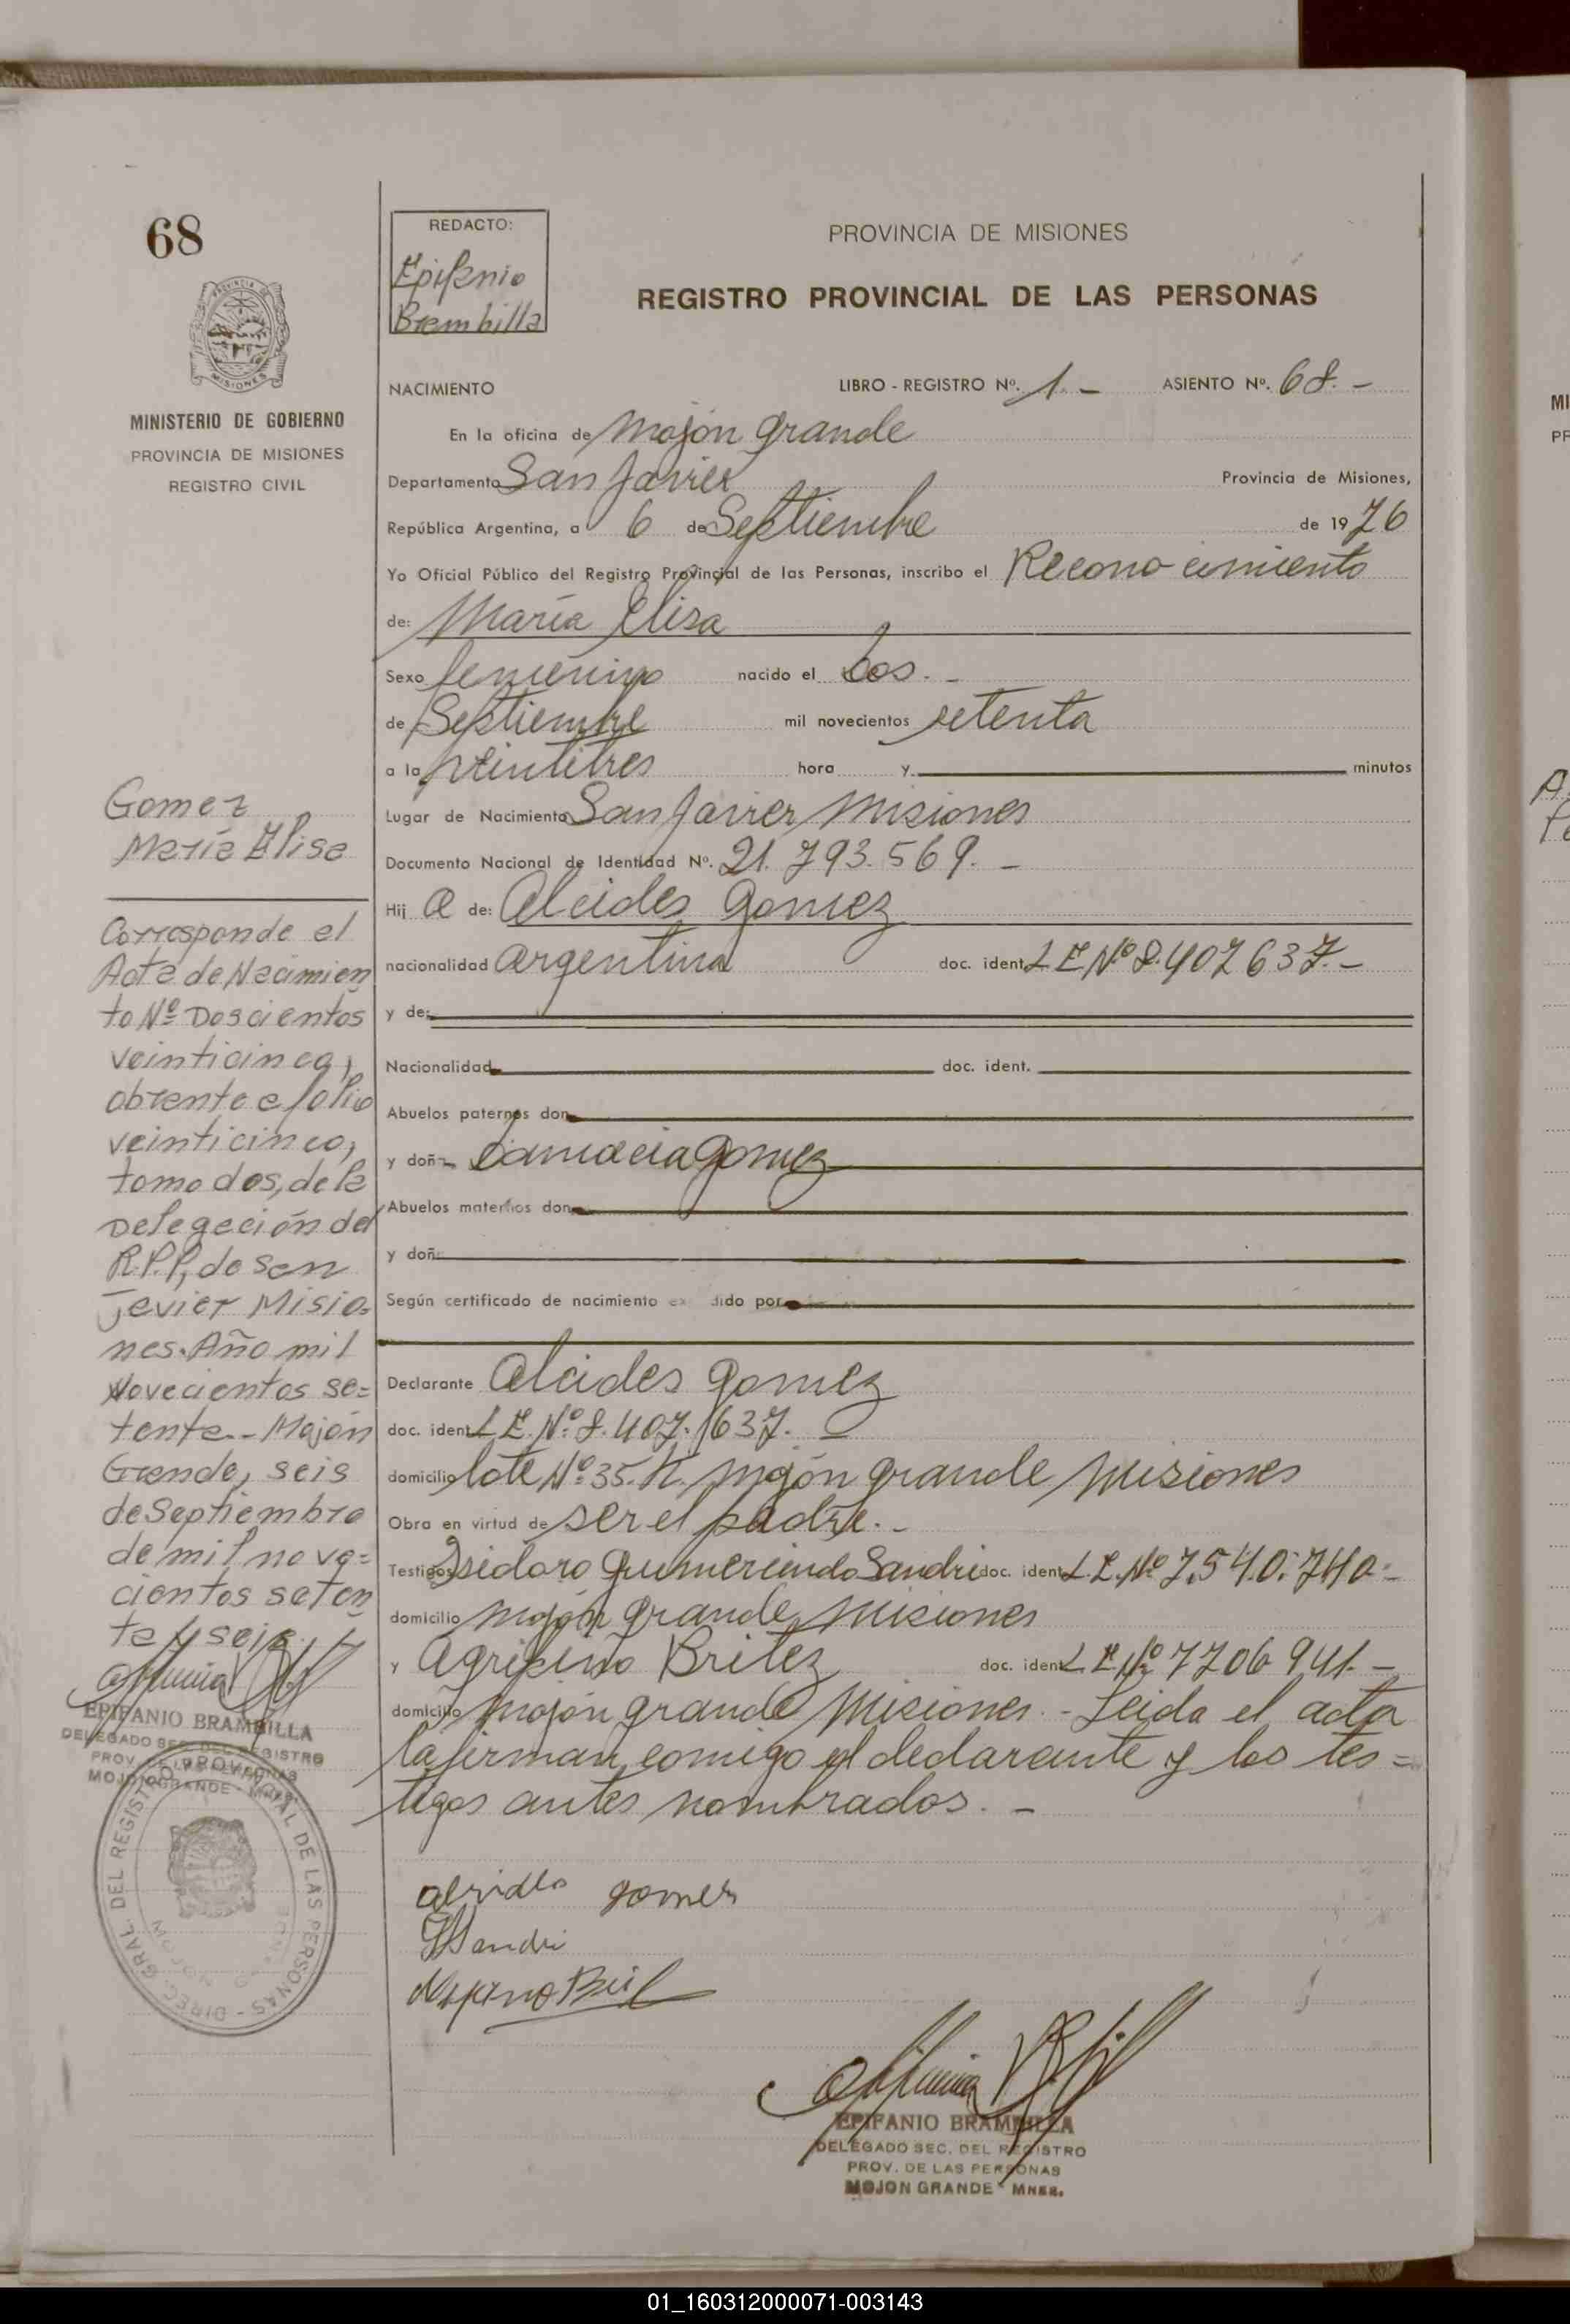 68
MINISTERIO DE GOBIERNO
PROVINCIA DE MISIONES
REGISTRO CIVIL
REDACTO:
Epifanio
Brambilla
PROVINCIA DE MISIONES
REGISTRO PROVINCIAL DE LAS PERSONAS
NACIMIENTO LIBRO - REGISTRO Nº. 1.- ASIENTO Nº. 68.-
En la oficina de Mojón Grande
Departamento San Javier Provincia de Misiones,
República Argentina, a 6 de Septiembre de 1976
Yo Oficial Público del Registro Provincial de las Personas, inscribo el Reconocimiento
de: María Elisa
Sexo femenino nacido el Dos.-
de Septiembre mil novecientos setenta
a la veintitres hora y minutos
Lugar de Nacimiento San Javier Misiones
Documento Nacional de Identidad Nº. 21.793.569.-
Hij a de: Alcides Gomez
nacionalidad argentina doc. ident. L E Nº 8.407637.-
y de:
Nacionalidad doc. ident.
Abuelos paternos don
y doñ Damacia Gomez
Abuelos maternos don
y doñ
Según certificado de nacimiento ex dido por
Declarante Alcides Gomez
doc. ident L E. Nº: 8.407.637.-
domicilio lote Nº: 35. K. Mojón Grande Misiones
Obra en virtud de ser el padre.-
Testigos Isidoro Gumercindo Sandri doc. ident L.E. Nº 7.540.740.-
domicilio Mojón Grande Misiones
y Agripino Britez doc. ident L E Nº 7706941.-
domicilio Mojón Grande Misiones.- Leida el acta
la firman comigo el declarante y los tes=
tigos antes nombrados.-
Gomez
María Elisa
Corresponde el
Acta de Nacimien
to Nº Doscientos
veinticinco,
obrante a folio
veinticinco,
tomo dos, de la
Delegación del
R.P.P, de San
Javier Misio=
nes. Año mil
Novecientos se=
tenta.- Mojón
Grande, seis
de Septiembre
de mil nove=
cientos seten
ta y seis.
EPIFANIO BRAMBILLA
DELEGADO SEC. DEL REGISTRO
PROV. DE LAS PERSONAS
MOJON GRANDE - Mnes.
DIREC. GRAL. DEL REGISTRO PROVINCIAL DE LAS PERSONAS
alcides gomes
Sandri
EPIFANIO BRAMBILLA
DELEGADO SEC. DEL REGISTRO
PROV. DE LAS PERSONAS
MOJON GRANDE - Mnes.
01_160312000071-003143